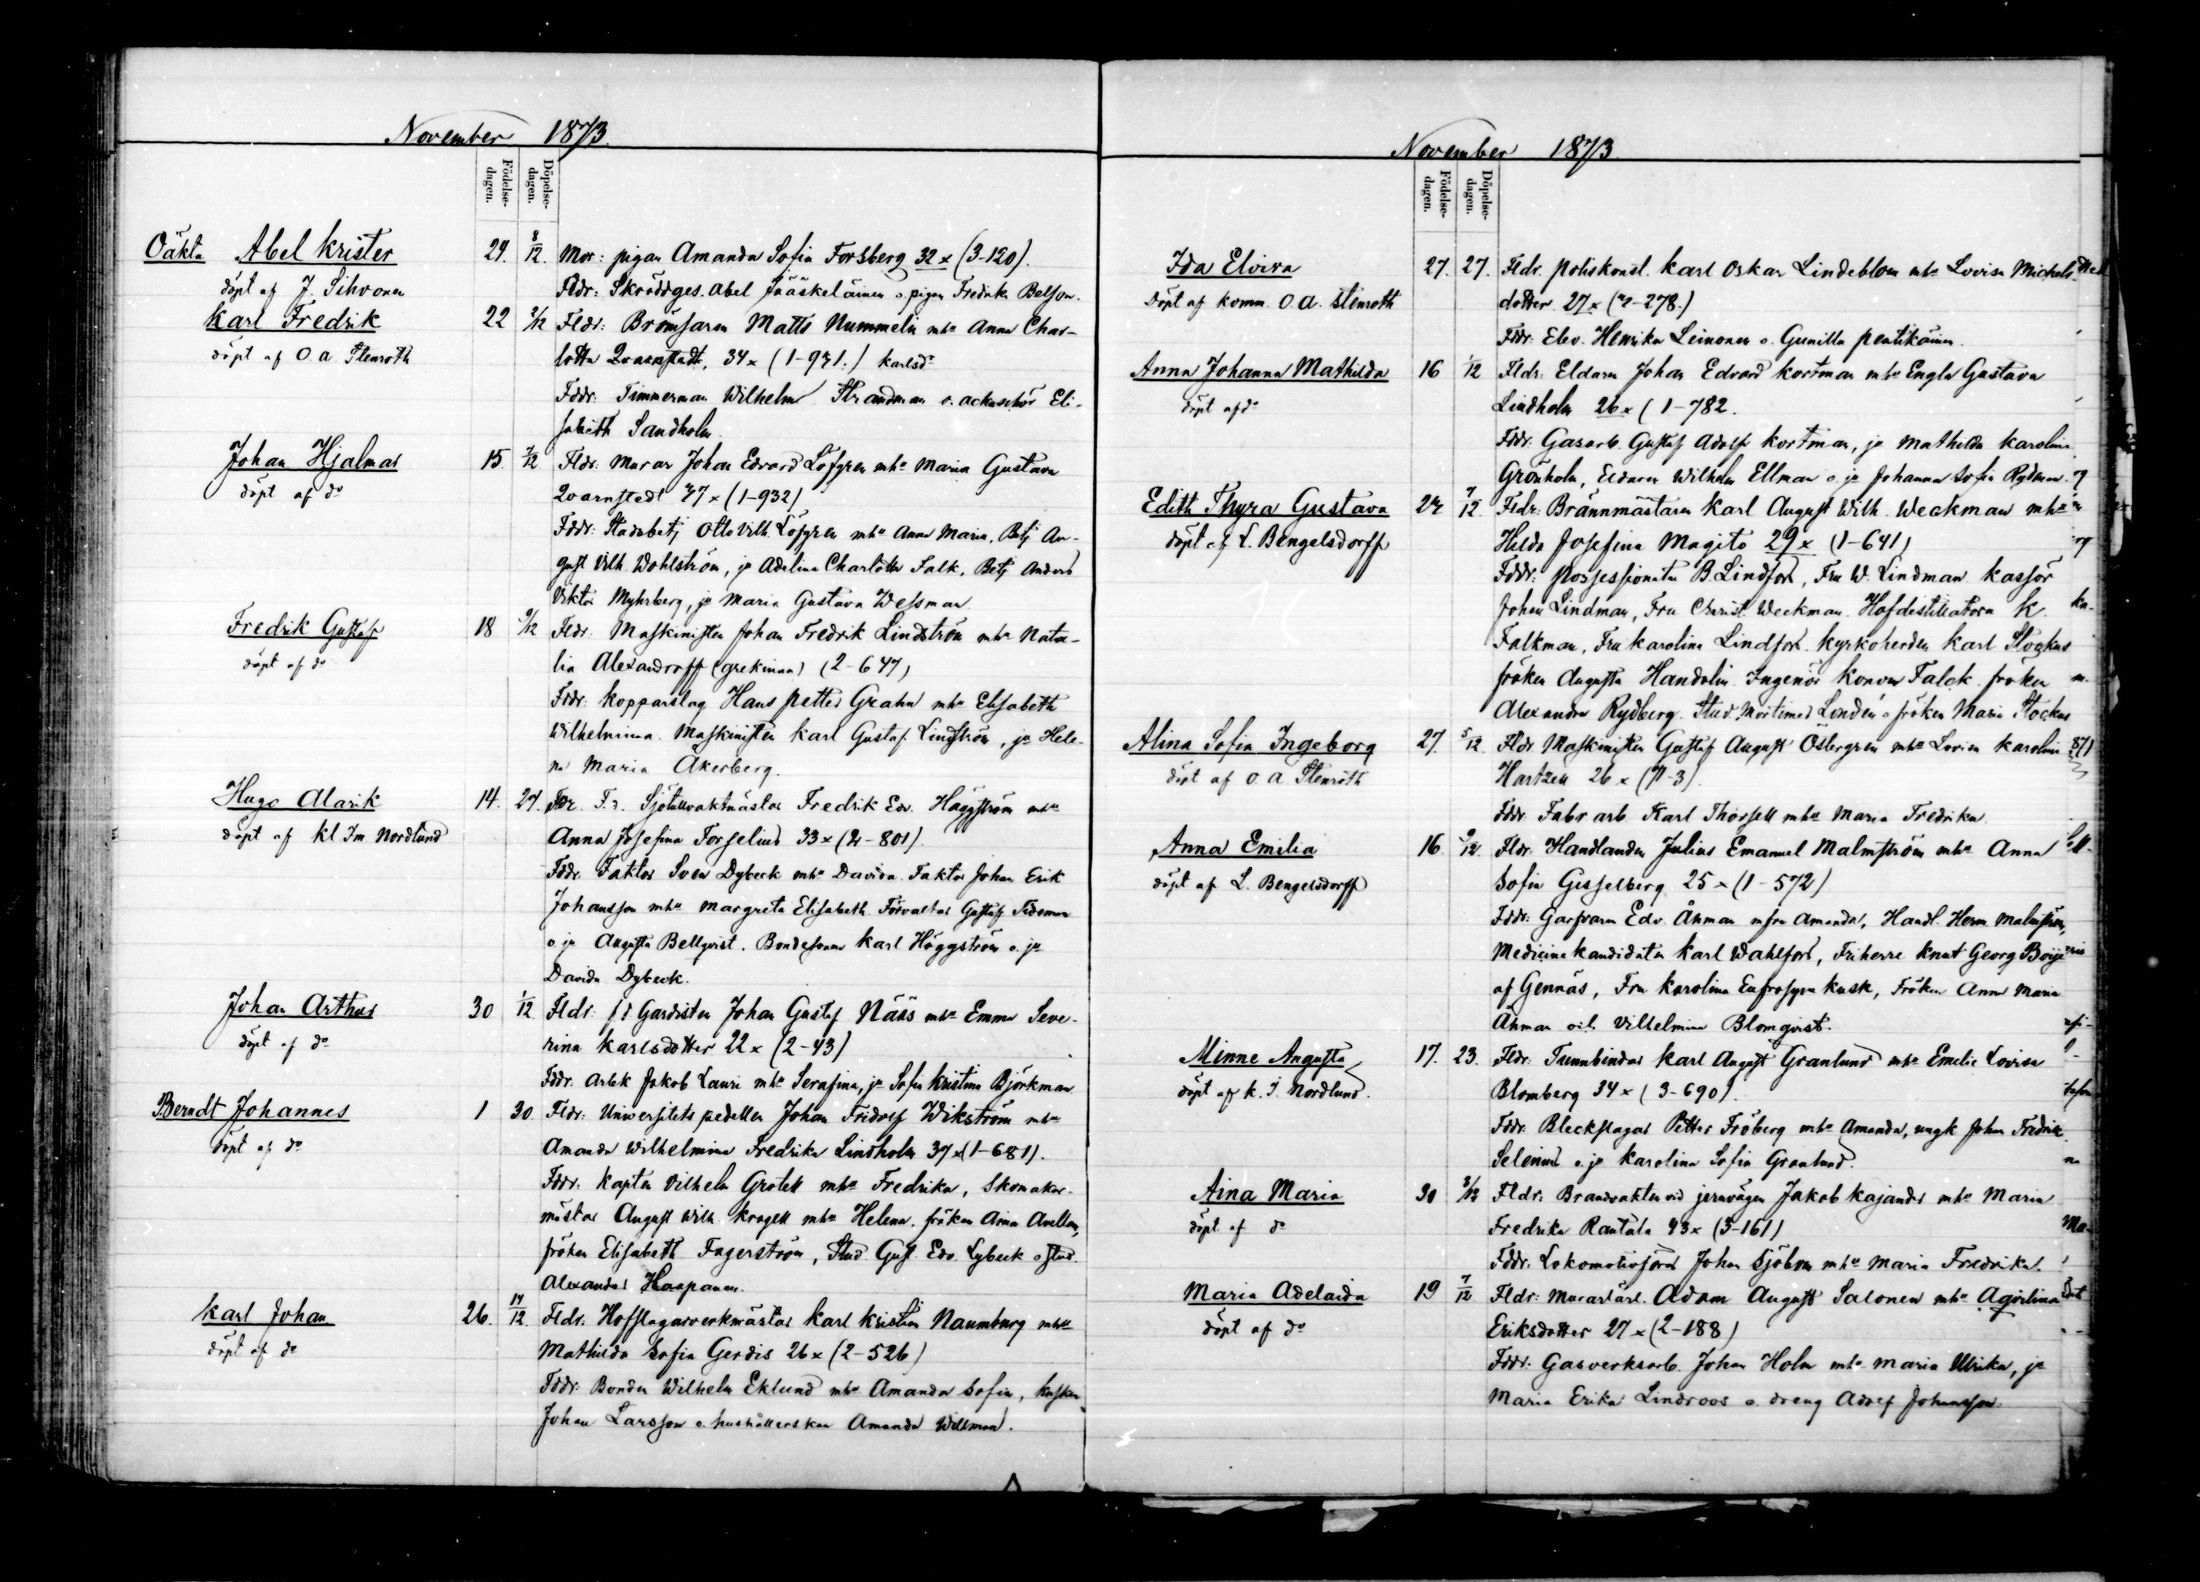 November 1873.
Födelse-dagen.
Döpelse-dagen.
Oäkta Abel Krister 24. 8/12 Mor: pigan Amanda Sofia Forsberg 32 x (3-120).
döpt af J. Sihvonen Fddr: Skräddges. Abel Jääskeläinen o. pigan Fredrika Belson.
Karl Fredrik 22 2/12 Fldr: Matts Nummelin mhu Anna Char-
döpt af O. A. Stenroth lotta Qvarnstedt, 34 x (1-971.) Karlsd.
Fddr: Timmerman Wilhelm Strandman o. Eli-
sabeth Sandholm
Johan Hjalmar 15. 7/12 Fldr: Murar Johan Edvard Löfgren mhu Maria Gustava
döpt af do Qvarnstedt 37 x (1-932)
Fddr: Stadsbetj Otto Vilh. Löfgren mhu Anna Maria, Betj Au-
gust Vilh. Wahlström, jo Adelina Charlotta Falk, Betj Anders
Viktor Myhrberg, jo Maria Gustava Wessman
Fredrik Gustaf 18 9/12 Fldr. Maskinisten Johan Fredrik Lindström mhu Nata-
döpt af do lia Alexandroff (grekinna) (2-647)
Fddr: Kopparslag Hans Petter Grahn mhu Elisabeth
Wilhelmina. Maskinisten Karl Gustaf Lindström, jo Hele-
na Maria Åkerberg.
Hugo Alarik 14. 27. Fldr. F.d. Sjötullvaktmästar Fredrik Edv. Häggström mhu
döpt af kl Im Nordlund Anna Josefina Forselius 33 x (2-801).
Fddr. Faktor Sven Dybeck mhu Davida. Faktor Johan Erik
Johansson mhu Margreta Elisabeth. Förvaltar Gustaf Tidsman
o. jo Augusta Bellqvist. Bondesonen Karl Häggström o. jo
Davida Dybeck.
Johan Arthur 30 1/12 Fldr. f.d Gardisten Johan Gustaf Nääs mhu Emma Seve-
döpt af do rina Karlsdotter 22 x (2-43)
Fddr. Arbk Jakob Lauri mhu Serafina, jo Sofia Kristina Björkman
Berndt Johannes 1 30 Fldr: Universitets pedellen Johan Fridolf Wikström mhu
döpt af do Amanda Wilhelmina Fredrika Lindholm 37 x (1-681).
Fddr. Kapten Vilhelm Grotell mhu Fredrika, Skomakar-
mästar August Wilh. Krogell mhu Helena. fröken Aina Avellan,
fröken Elisabeth Fagerström, Stud. Gust. Edv. Lybeck o stud.
Alexander Haapanen.
Karl Johan 26. 14/12 Fldr. Hofslagarverkmästar Karl Kristian Naumburg mhu
döpt af do Mathilda Sofia Gerdis 26 x (2-526)
Fddr: Bonden Wilhelm Eklund mhu Amanda Sofia, kusken
Johan Larsson o. hushållerskan Amanda Willman.
November 1873.
Födelse-dagen.
Döpelse-dagen.
Ida Elvira 27. 27. Fldr. poliskonst. Karl Oskar Lindeblom mhu Lovisa Michels-
döpt af komm. O. A. Stenroth dotter 27 x (2-278.)
Fddr: Elev. Henrika Leinonen o. Gunilla Pentikäinen.
Anna Johanna Mathilda 16 1/12 Fldr: Eldaren Johan Edvard Kortman mhu Engla Gustava
döpt af do Lindholm 26 x (1-782.
Fddr. Gasarb. Gustaf Adolf Kortman, jo Mathilda Karolina
Grönholm, Eldaren Wilhelm Ellman o. jo Johanna Sofia Rydman.
Edith Thyra Gustava 22 7/12 Fldr: Brännmästaren Karl August Wilh. Weckman mhu
döpt af L. Bengelsdorff Hilda Josefina Magito 29 x (1-641)
Fddr: Possessionaten B. Lindfors, Fru W. Lindman. Kassör
Johan Lindman, Fru Christ. Weckman. Hofdestillatorn K.
Falkman, Fru Karolina Lindfors. Kyrkoherden Karl Stockus
fröken Augusta Handolin. Ingenör Falck. fröken
Alexandra Rydberg. Stud. Mortimer Londén o fröken Maria Stockus
Alina Sofia Ingeborg 27. 5/12 Fldr Maskinisten Gustaf August Östergren mhu Lovisa Karolina
döpt af O. A. Stenroth Hartzell 26 x (71-3).
Fddr. Fabr. arb. Karl Thorsell mhu Maria Fredrika.
Anna Emilia 16. 9/12. Fldr. Handlanden Julius Emanuel Malmström mhu Anna
döpt af L. Bengelsdorff Sofia Gesselberg 25 x (1-572)
Fddr: Garfvaren Edv. Åhman m fru Amanda, Handl. Herm Malmström,
Medicinekandidaten Karl Wahlfors, Friherre Knut Georg Boije
af Gennäs, Fru Karolina Eufrosyne Kusk, Fröken Anna Maria
Åhman och Vilhelmina Blomqvist.
Minne Augusta 17. 23. Fldr. Tunnbindar Karl August Granlund mhu Emelie Lovisa
döpt af k. J. Nordlund. Blomberg 34 x (3-690).
Fddr. Bleckslagar Petter Fröberg mhu Amanda, ungk Johan Fredrik
Selenius o. jo Karolina Sofia Granlund.
Aina Maria 30 3/12 Fldr: Brandvakten vid jernvägen Jakob Kajander mhu Maria
döpt af do Fredrika Rantala 43 x (3-161)
Fddr. Lokomotivförar Johan Sjöblom mhu Maria Fredrika.
Maria Adelaida 19 7/12 Fldr: Adam August Salonen mhu Agostina
döpt af do Eriksdotter 27 x (2-188)
Fddr. Gasverksarb. Johan Holm mhu Maria Ulrika, jo
Maria Erika Lindroos o. dreng Adolf Johansson.